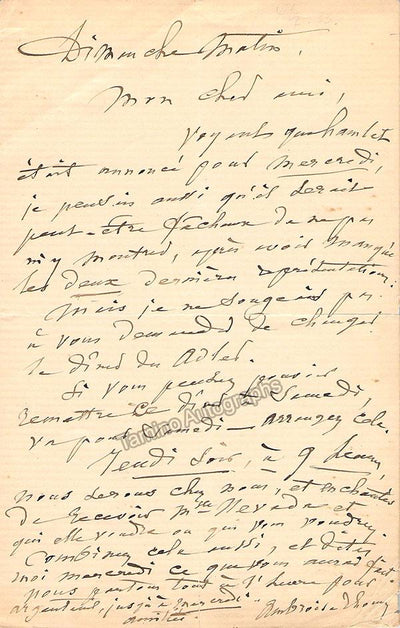 Dimanche Matin.
Mon cher ami,
Voyant qu'Hamlet
était annoncé pour mercredi,
je pensais aussi qu'il serait
peut-être fâcheux de ne pas
m'y montrer, après avoir manqué
les deux dernières représentations;
Mais je ne songeais pas
à vous demander de changer
le dîner du Adler.
Si vous pensez pouvoir
remettre ce dîner à Samedi,
va pour Samedi — arrangez cela.
Tardino Autographs
Jeudi soir, à 9 heures,
nous serons chez nous, et enchantés
de recevoir Mme Nevada et
qui elle voudra ou qui vous voudrez.
Combinez cela aussi, et dites
moi mercredi ce que vous aurez fait.
nous partons tout à l'heure pour
Argenteuil, jusqu'à mercredi.
amitiés. Ambroise Thomas